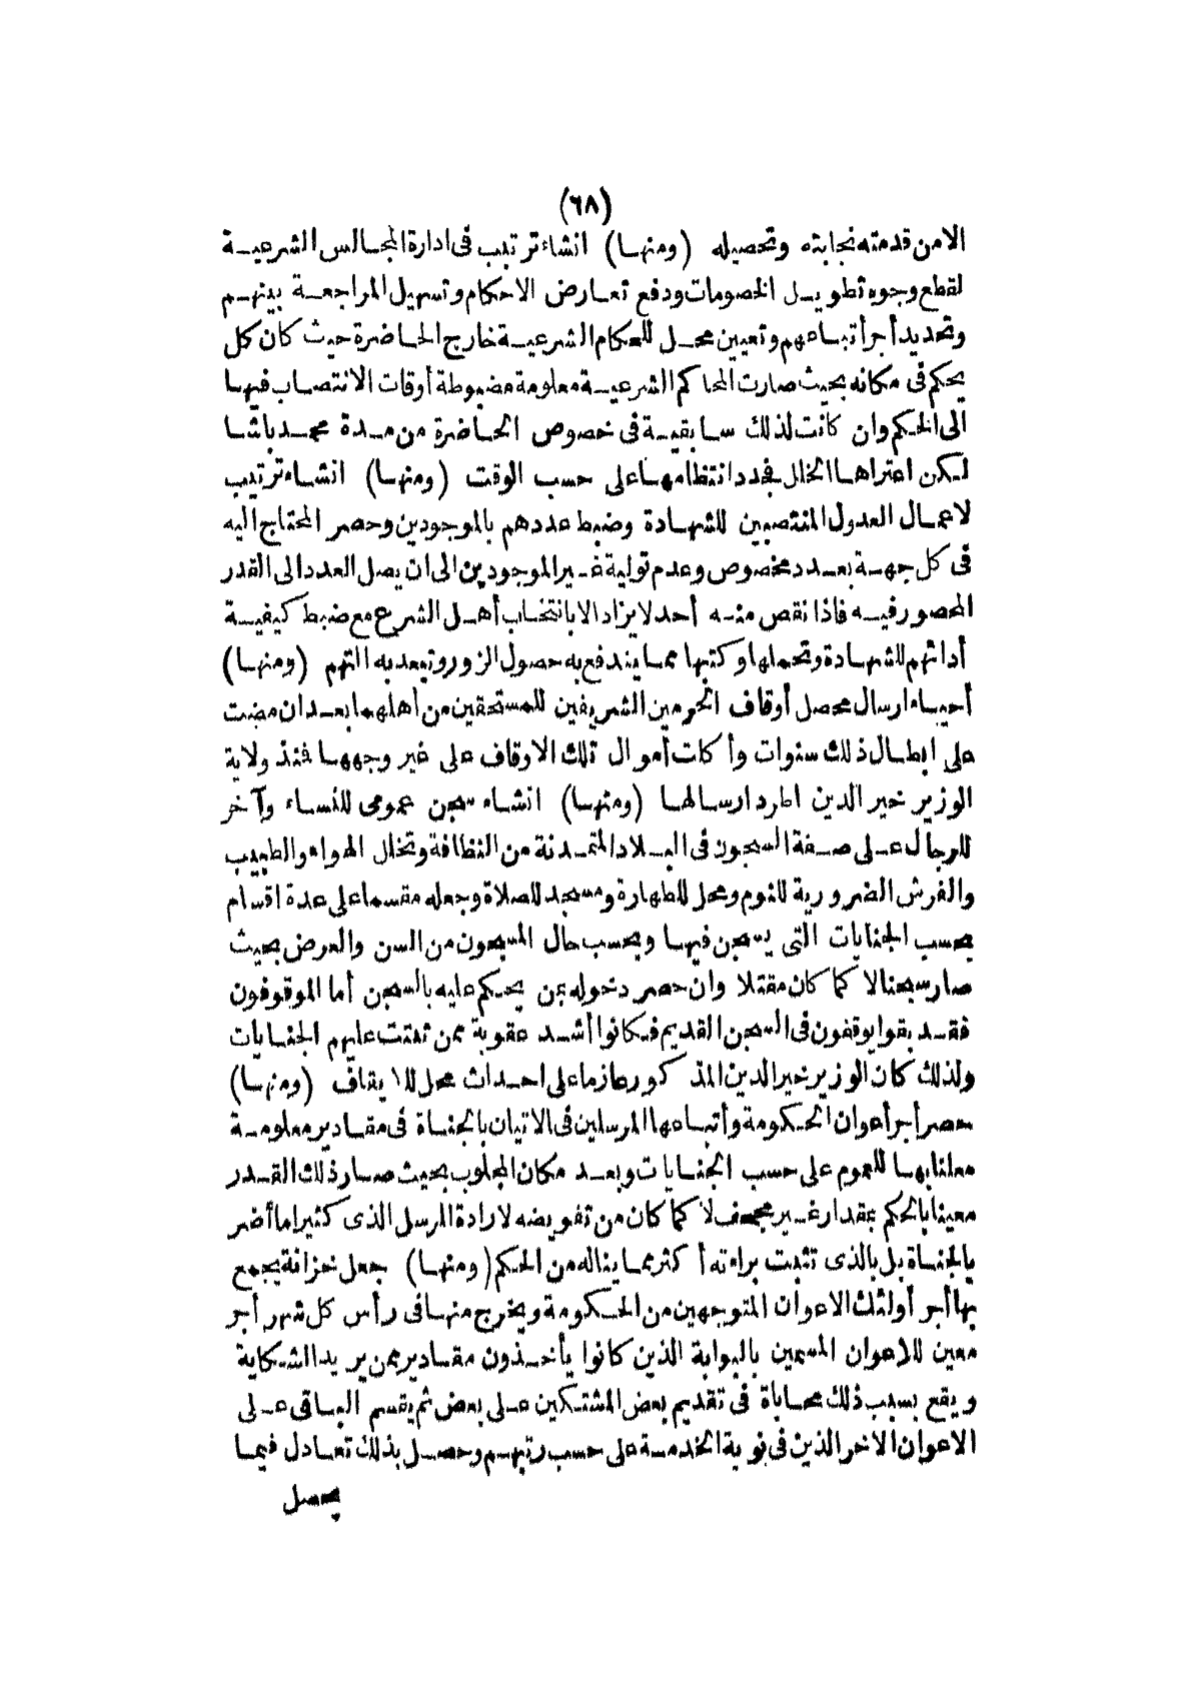 (٦٨)
الا من قدمته نجابته وتحصيله (ومنها) انشاء ترتيب فى ادارة المجالس الشرعية
لقطع وجوه تطويل الخصومات ودفع تعارض الاحكام وتسهيل المراجعة بينهم
وتحديد أجر أتباعهم وتعيين محل للحكام الشرعية خارج الحاضرة حيث كان كل
يحكم فى مكانه بحيث صارت المحاكم الشرعية معلومة مضبوطة أوقات الانتصاب فيها
الى الحكم وان كانت لذلك سابقية فى خصوص الحاضرة من مدة محمد باشا
لكن اعتراها الخلل فجدد انتظامها على حسب الوقت (ومنها) انشاء ترتيب
لاعمال العدول المنتصبين للشهادة وضبط عددهم بالموجودين وحصر المحتاج اليه
فى كل جهة بعدد مخصوص وعدم تولية غير الموجودين الى ان يصل العدد الى القدر
المحصور فيه فاذا نقص منه أحد لا يزاد الا بانتخاب أهل الشرع مع ضبط كيفية
أدائهم للشهادة وتحملها وكتبها مما يندفع به حصول الزور وتبعد به التهم (ومنها)
أحياء ارسال محصل أوقاف الحرمين الشريفين للمستحقين من أهلهما بعد ان مضت
على ابطال ذلك سنوات وأكلت أموال تلك الاوقاف على غير وجهها فمنذ ولاية
الوزير خير الدين اطرد ارسالها (ومنها) انشاء سجن عمومى للنساء وآخر
للرجال على صفة السجون فى البلاد المتمدنة من النظافة وتخلل الهواء والطبيب
والفرش الضرورية للنوم ومحل للطهارة ومسجد للصلاة وجعله مقسما على عدة اقسام
بحسب الجنايات التى يسجن فيها وبحسب حال المسجون من السن والعرض بحيث
صار سجنا لا كما كان مقتلا وان حصر دخوله بمن يحكم عليه بالسجن أما الموقوفون
فقد بقوا يوقفون فى السجن القديم فكانوا أشد عقوبة ممن ثبتت عليهم الجنايات
ولذلك كان الوزير خير الدين المذكور عازما على احداث محل للايقاف (ومنها)
حصر أجر أعوان الحكومة وأتباعها المرسلين فى الاتيان بالجناة فى مقادير معلومة
معلنا بها للعموم على حسب الجنايات وبعد مكان المجلوب بحيث صار ذلك القدر
معينا بالحكم بمقدار غير مجحف لا كما كان من تفويضه لارادة المرسل الذى كثيرا ما أضر
بالجناة بل بالذى تثبت براءته أكثر مما يناله من الحكم (ومنها) جعل خزانة يجمع
بها أجر أولئك الاعوان المتوجهين من الحكومة ويخرج منها فى رأس كل شهر أجر
معين للاعوان المسمين بالبوابة الذين كانوا يأخذون مقادير ممن يريد الشكاية
ويقع بسبب ذلك محاباة فى تقديم بعض المشتكين على بعض ثم يقسم الباقى على
الاعوان الاخر الذين فى نوبة الخدمة على حسب رتبهم وحصل بذلك تعادل فيما
يحصل